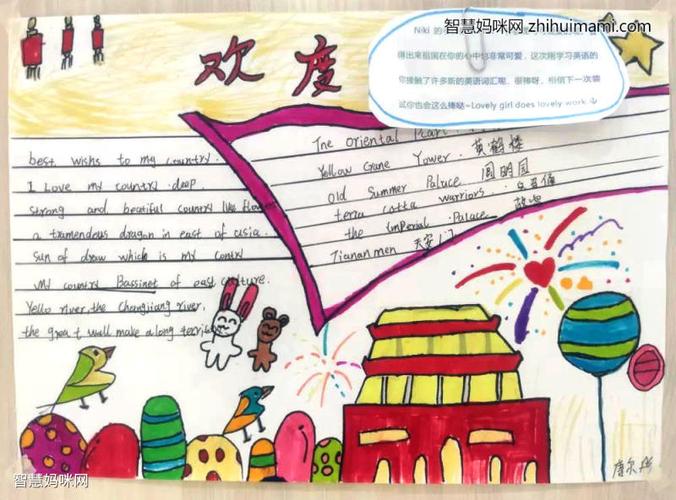 智慧妈咪网 zhihuimami.com
欢度
Niki 的
得出来祖国在你的心中也非常可爱，这次刚学习英语的
你接触了许多新的英语词汇呢，很棒呀，相信下一次尝
试你也会这么棒哒~Lovely girl does lovely work
best wishs to my country.
I Love my country deep.
strong and beatiful country like flower
a tramendous dragon in east of asia.
sun of draw which is my contry
My country Bassinet of east culture.
Yello river, the Changjiang river,
the great wall make a long
The Oriental Pearl
Yellow Crane Tower. 黄鹤楼
Old Summer Palace 圆明园
terra cotta warriors. 兵马俑
the Imperial Palace 故宫
Tiananmen 天安门
智慧妈咪网